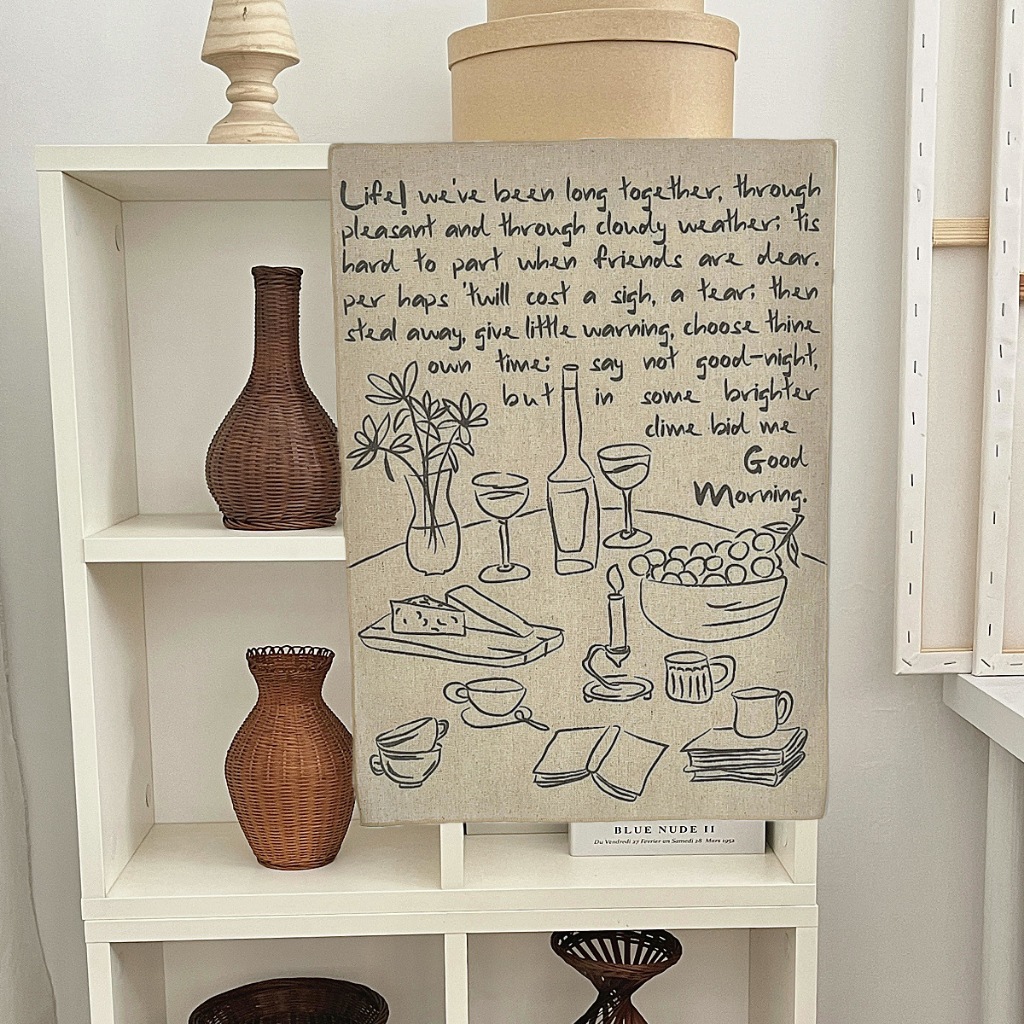 Life! we've been long together, through
pleasant and through cloudy weather; 'tis
hard to part when friends are dear.
per haps 'twill cost a sigh, a tear; then
steal away, give little warning, choose thine
own time; say not good-night,
but in some brighter
clime bid me
Good
Morning.
BLUE NUDE II
Du Vendredi 27 Fevrier en Samedi 28 Mars 1952